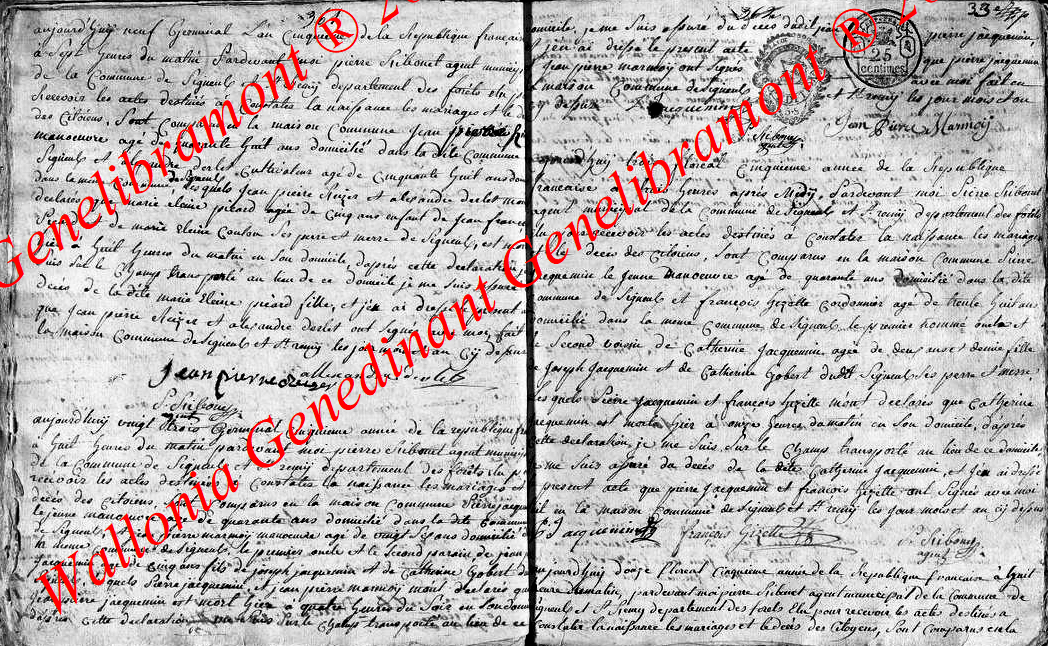 aujourd'huy neuf germinal L'an Cinquieme de la Republique francaise
à Sept heures du matin Pardevant moi pierre Sibonet agent municip
de la Commune de Signeuls et St remy departement des forets elu po
Recevoir les actes destinés a Constater la naissance les mariages et le de
des Citoiens, Sont Comparus en la maison Commune Jean pierre
manoeuvre agé de quarante huit ans domicilié dans la dite Commune
Signeuls et alexandre derlet Cultivateur agé de Cinquante huit ans dom
dans la meme Commune de Signeuls
les quels Jean pierre et alexandre derlet mont
declarés que marie eleine picard agée de Cinq ans enfant de Jean francois
de marie eleine Conton Ses pere et merre de Signeuls, est
hier à huit heures du matin en Son domicile, d'apres cette declaration je
Suis Sur le Champ transporté au lieu de ce domicile je me Suis assuré
décès de la dite marie Eleine picard fille, et j'en ai dressé le present a
que Jean pierre et alexandre derlet ont Signés avec moi fait
la maison Commune de Signeuls et St remy les jour mois et an Cy dessus
Jean pierre
allexandre derlet
P. Sibonet
agent
aujourd'huy vingt trois Germinal Cinquieme année de la republique fr
à huit heures du matin pardevant moi pierre Sibonet agent municip
de la Commune de Signeuls et St remy departement des forets elu p
recevoir les actes destinés à Constater la naissance les mariages et
décès des Citoiens, Sont Comparus en la maison Commune Pierre jacque
le jeune manoeuvre agé de quarante ans domicilié dans la dite Commune
Signeuls et Jean Pierre marmoy manoeuvre agé de vingt Six ans domicilié d
la meme Commune de Signeuls, le premier oncle et le Second parain de jean p
jacquemin agé de Cinq ans fils de joseph jacquemin et de Catherine Gobert d
Signeuls lesquels Pierre jacquemin et jean pierre marmoy mont declarés que
jean pierre jacquemin est mort hier a quatre heures du Soir en Son domi
d'apres Cette declaration me Suis Sur le Champ transporté au lieu de ce
domicile, je me Suis assuré du décès dudit jean pierre jacquemin,
j'en ai dressé le present acte que pierre jacquemin
Jean pierre marmoy ont Signés avec moi fait en
maison Commune de Signeuls et St remy les jour mois et an
cy dessus
P. Jacquemin
Jean Piere Marmoy
P. Sibonet
agent
33
25
centimes
aujourd'huy trois floreal Cinquieme année de la Republique
francaise à trois heures après Midy Pardevant moi Pierre Sibonet
agent municipal de la Commune de Signeuls et St remy departement des forets
Elu pour recevoir les actes destinés a Constater la naissance les mariages
et les décès des Citoiens, Sont Comparus en la maison Commune Pierre
jacquemin le jeune manoeuvre agé de quarante ans domicilié dans la dite
Commune de Signeuls et françois Gizette Cordonnier agé de trente huit ans
domicilié dans la meme Commune de Signeuls, le premier homme oncle et
le Second voisin de Catherine Jacquemin, agée de deux ans et demie fille
de Joseph Jacquemin et de Catherine Gobert dudit Signeuls Ses pere et merre,
les quels Pierre Jacquemin et françois Gizette mont declarés que Catherine
Jacquemin est morte hier à onze heures du matin en Son domicile, d'après
cette declaration, je me Suis, Sur le Champ transporté au lieu de ce domicile
je me Suis assuré du décès de la dite Catherine Jacquemin, et j'en ai dressé
present acte que pierre Jacquemin et françois Gizette ont Signés avec moi
fait en la maison Commune de Signeuls et St remy les jour mois et an cy dessus
P. Jacquemin
françois Gizette
P. Sibonet
agent
aujourd'huy onze floreal Cinquieme année de la Republique francaise à huit
heures du matin, pardevant moi pierre Sibonet agent municipal de la Commune de
Signeuls et St Remy departement des forets Elu pour recevoir les actes destinés a
Constater la naissance les mariages et le decès des Citoyens, Sont Comparus en la
Wallonia Genedinant Genelibramont ®
Genelibramont ® 20